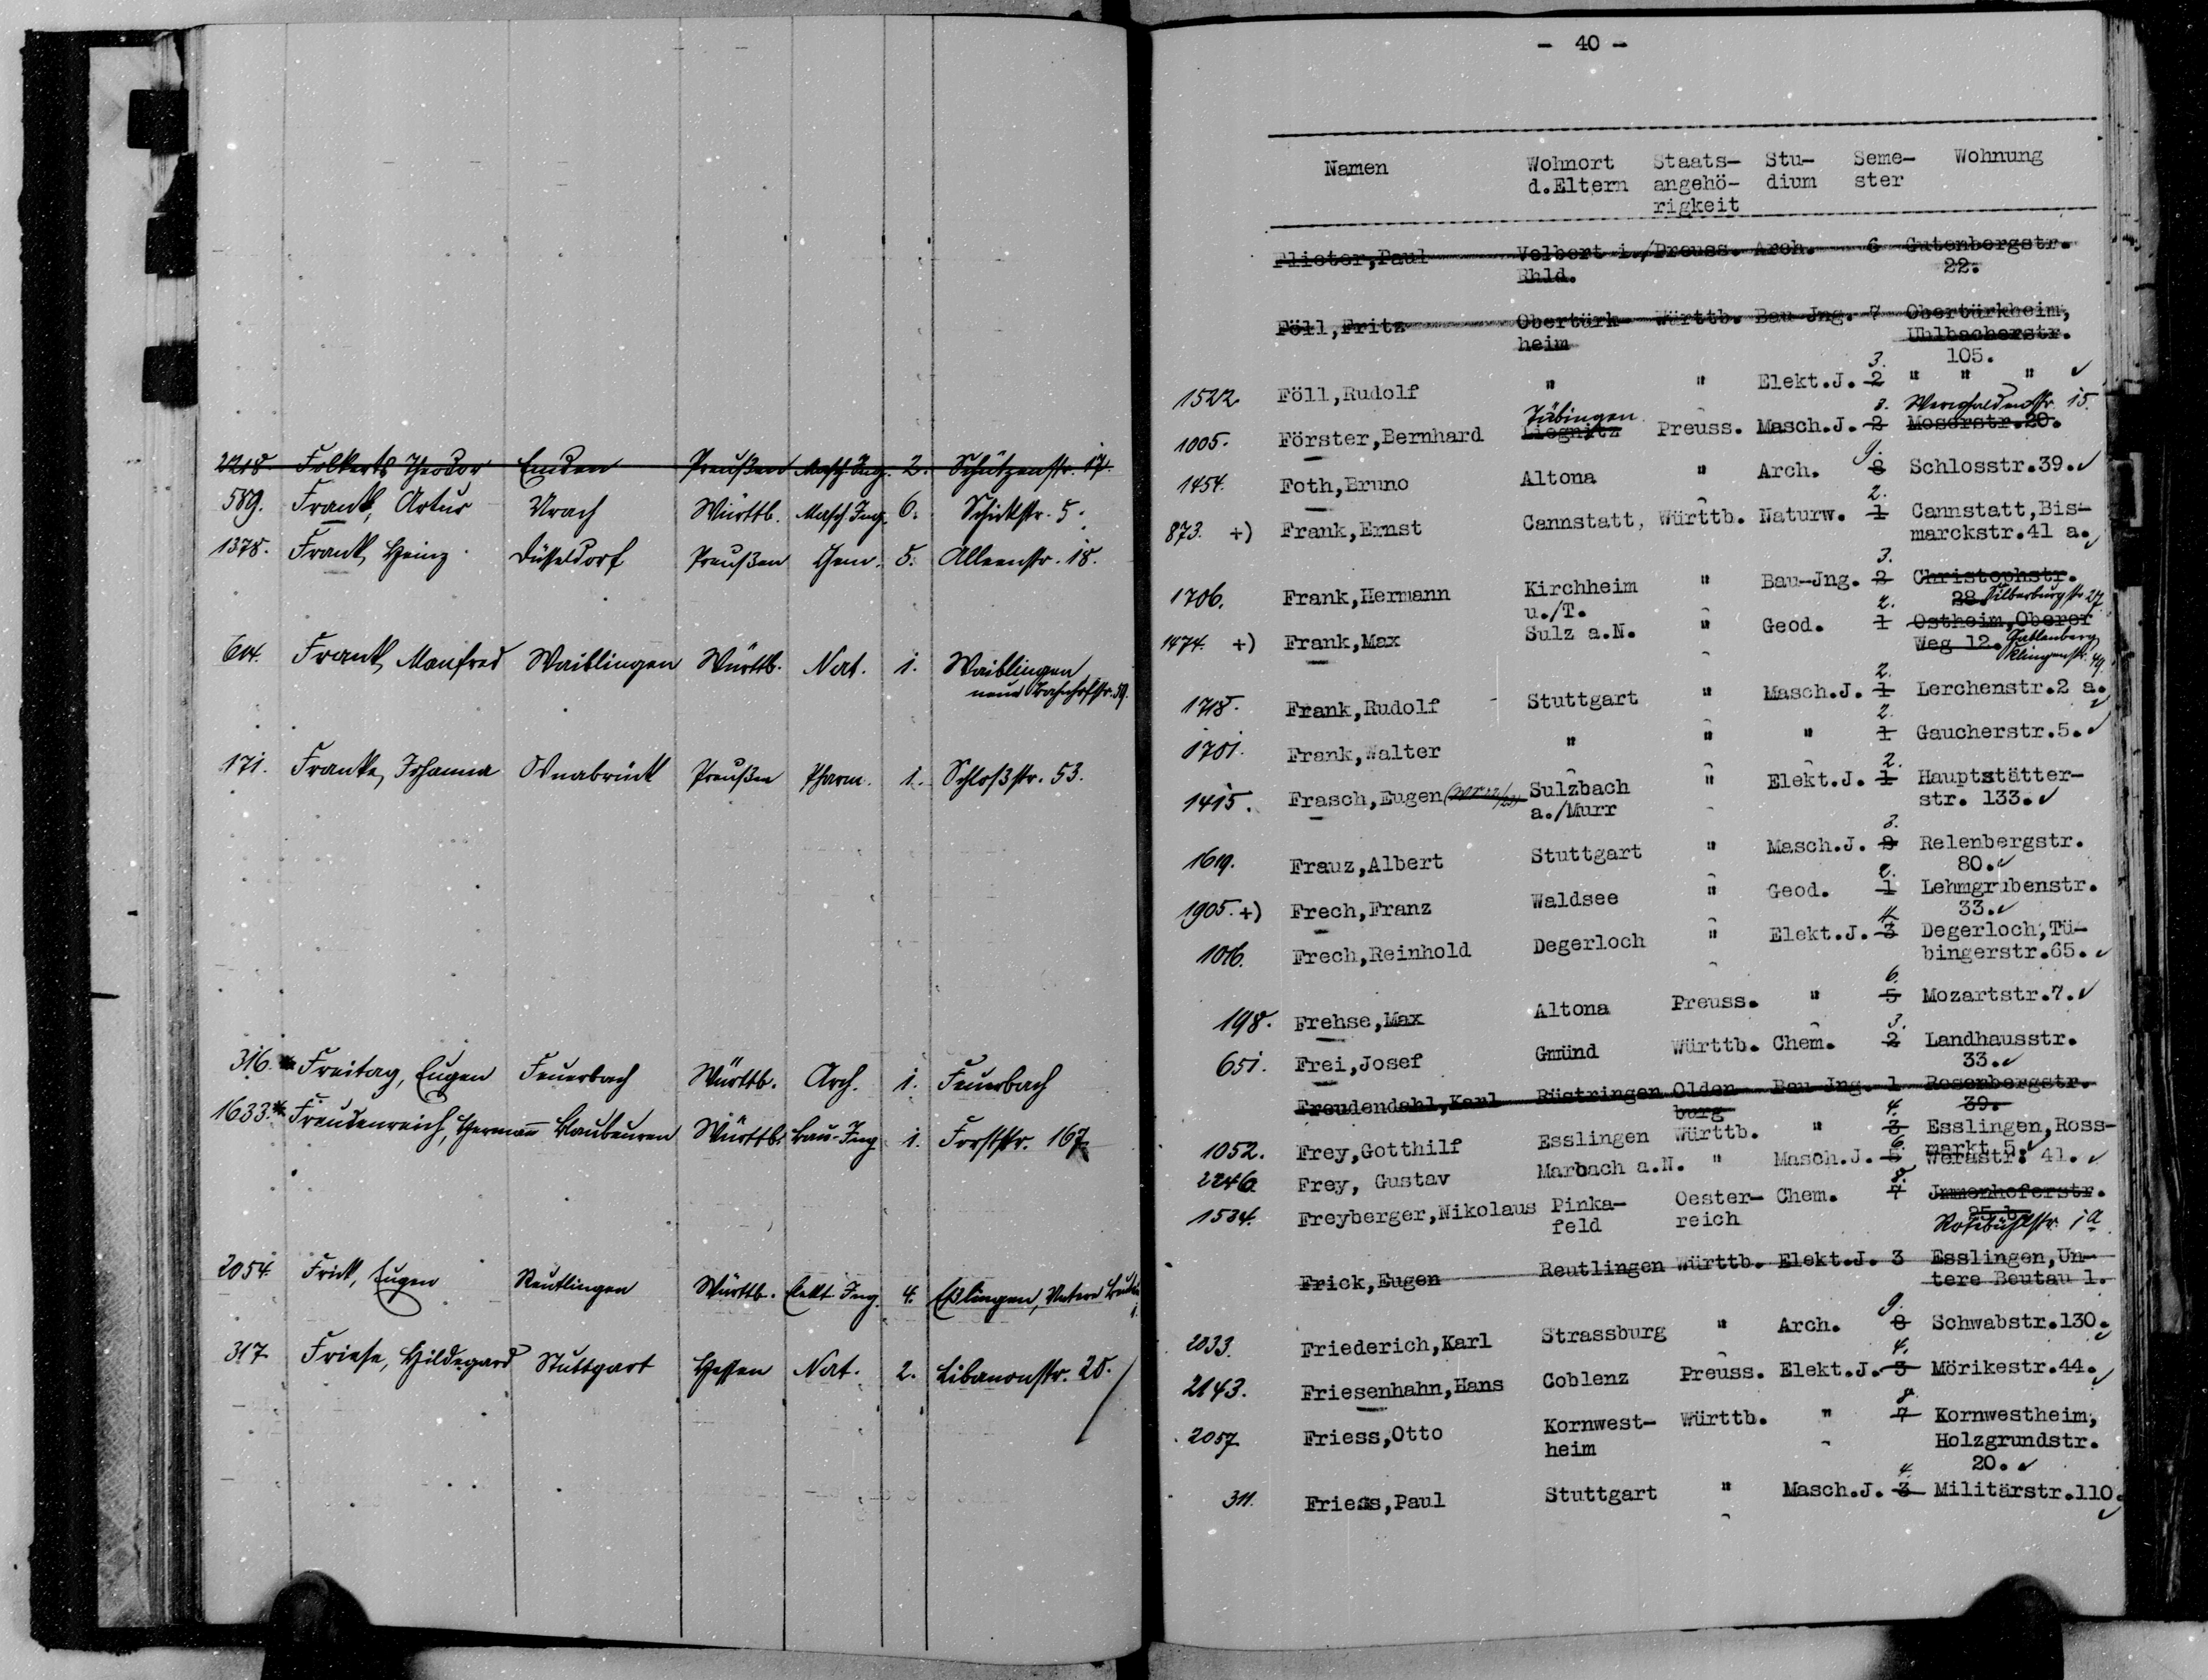 2218. Folkerts Theodor Emden Preußen Masch. Ing. 2. Schützenstr. 17.
589. Frank, Artur Urach Württb. Masch Ing. 6. Schickstr. 5.
1378. Frank, Heinz Düsseldorf Preußen Chem. 5. Alleenstr. 18.
604. Frank, Manfred Waiblingen Württb. Nat. 1. Waiblingen,
neue Bahnhofstr. 59.
171. Franke, Johanna Osnabrück Preußen Pharm. 1. Schloßstr. 53.
316. Freitag, Eugen Feuerbach Württb. Arch. 1. Feuerbach
1633. Freudenreich, Hermann Blaubeuren Württb. Bau-Ing 1. Forststr. 167
2054. Frick, Eugen Reutlingen Württb. Elekt. Ing. 4. Eßlingen, Untere Beutau
1.
317. Friese, Hildegard Stuttgart Hessen Nat. 2. Libanonstr. 20.
- 40 -
Namen Wohnort Staats- Stu- Seme- Wohnung
d.Eltern angehö- dium ster
rigkeit
Flieter,Paul Velbert i./Preuss. Arch. 6 Gutenbergstr.
Rhld. 22.
Föll,Fritz Obertürk- Württb. Bau-Jng. 7 Obertürkheim,
heim Uhlbacherstr.
3. 105.
1522. Föll,Rudolf " " Elekt.J. 2 " " "
Tübingen 3. 15.
1005. Förster,Bernhard Liegnitz Preuss. Masch.J. 2 Moserstr.20.
9.
1454. Foth,Bruno Altona " Arch. 8 Schlosstr.39.
2.
873. +) Frank,Ernst Cannstatt, Württb. Naturw. 1 Cannstatt,Bis-
marckstr.41 a.
3.
1706. Frank,Hermann Kirchheim " Bau-Jng. 2 Christophstr.
u./T. 2. 28. Silberburgstr 27.
1474. +) Frank,Max Sulz a.N. " Geod. 1 Ostheim,Oberer
Weg 12. Gablenberg
Klingenstr. 49.
2.
1718. Frank,Rudolf Stuttgart " Masch.J. 1 Lerchenstr.2 a.
2.
1701. Frank,Walter " " " 1 Gaucherstr.5.
2.
1415. Frasch,Eugen (W.S 22/23) Sulzbach " Elekt.J. 1 Hauptstätter-
a./Murr str. 133.
3.
1619. Frauz,Albert Stuttgart " Masch.J. 2 Relenbergstr.
2. 80.
1905. +) Frech,Franz Waldsee " Geod. 1 Lehmgrubenstr.
4. 33.
1016. Frech,Reinhold Degerloch " Elekt.J. 3 Degerloch,Tü-
bingerstr.65.
6.
198. Frehse,Max Altona Preuss. " 5 Mozartstr.7.
3.
651. Frei,Josef Gmünd Württb. Chem. 2 Landhausstr.
33.
Freudendahl,Karl Rüstringen Olden- Bau-Jng. 1 Rosenbergstr.
burg 4. 39.
1052. Frey,Gotthilf Esslingen Württb. " 3 Esslingen,Ross-
6. markt 5.
2246. Frey, Gustav Marbach a.N. " Masch.J. 5 Werastr. 41.
8.
1534. Freyberger,Nikolaus Pinka- Oester- Chem. 7 Jmmenhoferstr.
feld reich 25 b.
Rotebühlstr. 1a
Frick,Eugen Reutlingen Württb. Elekt.J. 3 Esslingen,Un-
tere Beutau 1.
9.
2033. Friederich,Karl Strassburg " Arch. 8 Schwabstr.130.
4.
2143. Friesenhahn,Hans Coblenz Preuss. Elekt.J. 3 Mörikestr.44.
8.
2057. Friess,Otto Kornwest- Württb. " 7 Kornwestheim,
heim Holzgrundstr.
4. 20.
311. Friess,Paul Stuttgart " Masch.J. 3 Militärstr.110.